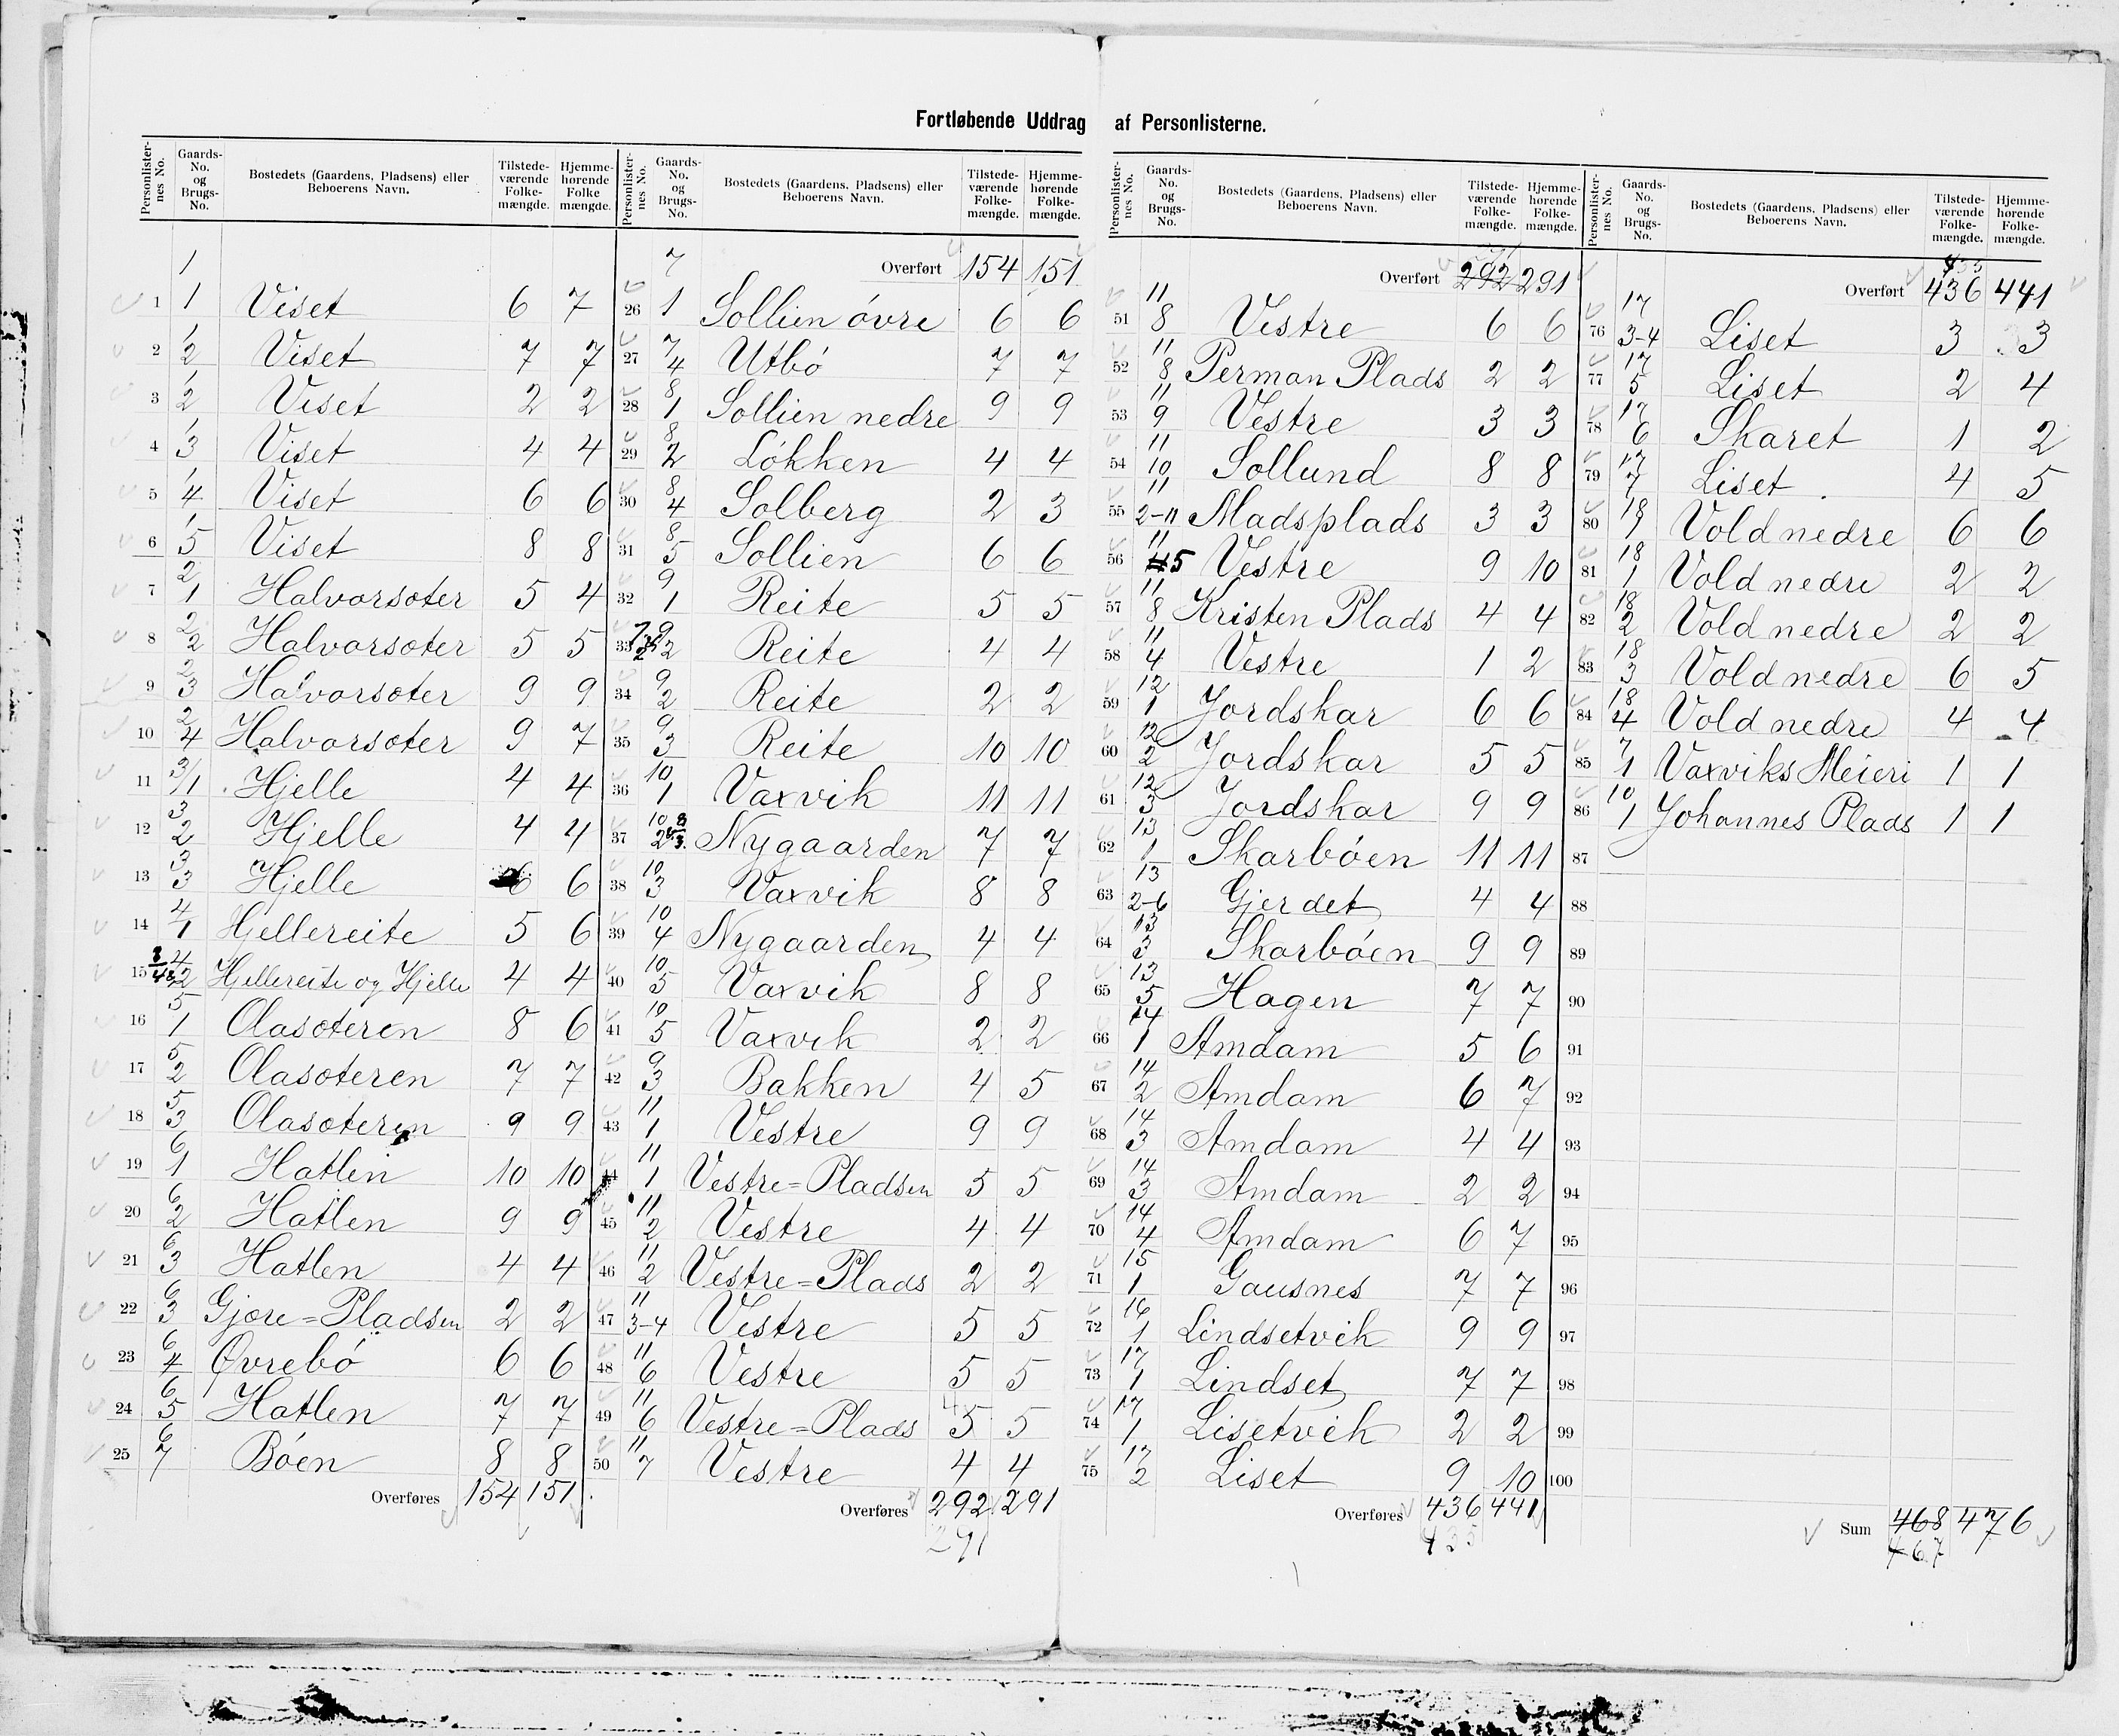 Fortløbende Uddrag af Personlisterne.
Personlister-nes No. | Gaards-No. og Brugs-No. | Bostedets (Gaardens, Pladsens) eller Beboerens Navn. | Tilstede-værende Folke-mængde. | Hjemme-hørende Folke mængde.
1 | 1/1 | Viset | 6 | 7
2 | 1/2 | Viset | 7 | 7
3 | 1/2 | Viset | 2 | 2
4 | 1/3 | Viset | 4 | 4
5 | 1/4 | Viset | 6 | 6
6 | 1/5 | Viset | 8 | 8
7 | 2/1 | Halvorsæter | 5 | 4
8 | 2/2 | Halvorsæter | 5 | 5
9 | 2/3 | Halvorsæter | 9 | 9
10 | 2/4 | Halvorsæter | 9 | 7
11 | 3/1 | Hjelle | 4 | 4
12 | 3/2 | Hjelle | 4 | 4
13 | 3/3 | Hjelle | 6 | 6
14 | 4/1 | Hjellereite | 5 | 6
15 | 4/2 | Hjellereite og Hjelle | 4 | 4
16 | 5/1 | Olasæteren | 8 | 6
17 | 5/2 | Olasæteren | 7 | 7
18 | 5/3 | Olasæteren | 9 | 9
19 | 6/1 | Hatlen | 10 | 10
20 | 6/2 | Hatlen | 9 | 9
21 | 6/3 | Hatlen | 4 | 4
22 | 6/3 | Gjære=Pladsen | 2 | 2
23 | 6/4 | Øvrebó | 6 | 6
24 | 6/5 | Hatlen | 7 | 7
25 | 6/7 | Bóen | 8 | 8
Overføres | 154 | 151
Personlister-nes No. | Gaards-No. og Brugs-No. | Bostedets (Gaardens, Pladsens) eller Beboerens Navn. | Tilstede-værende Folke-mængde. | Hjemme-hørende Folke-mængde.
Overført | 154 | 151
26 | 7/1 | Sollien óvre | 6 | 6
27 | 7/4 | Utbó | 7 | 7
28 | 8/1 | Sollien nedre | 9 | 9
29 | 8/2 | Lókken | 4 | 4
30 | 8/4 | Solberg | 2 | 3
31 | 8/5 | Sollien | 6 | 6
32 | 9/1 | Reite | 5 | 5
33 | 9/2 | Reite | 4 | 4
34 | 9/2 | Reite | 2 | 2
35 | 9/3 | Reite | 10 | 10
36 | 10/1 | Vaxvik | 11 | 11
37 | 10/2 8/3 | Nygaarden | 7 | 7
38 | 10/3 | Vaxvik | 8 | 8
39 | 10/4 | Nygaarden | 4 | 4
40 | 10/5 | Vaxvik | 8 | 8
41 | 10/5 | Vaxvik | 2 | 2
42 | 9/3 | Bakken | 4 | 5
43 | 11/1 | Vestre | 9 | 9
44 | 11/1 | Vestre=Pladsen | 5 | 5
45 | 11/2 | Vestre | 4 | 4
46 | 11/2 | Vestre=Plads | 2 | 2
47 | 11/3-4 | Vestre | 5 | 5
48 | 11/6 | Vestre | 5 | 5
49 | 11/6 | Vestre=Plads | 5 4 | 5
50 | 11/7 | Vestre | 4 | 4
Overføres | 292 | 291
291
Personlister-nes No. | Gaards-No. og Brugs-No. | Bostedets (Gaardens, Pladsens) eller Beboerens Navn. | Tilstede-værende Folke-mængde. | Hjemme-hørende Folke-mængde.
Overført | 292 | 291
51 | 11/8 | Vestre | 6 | 6
52 | 11/8 | Perman Plads | 2 | 2
53 | 11/9 | Vestre | 3 | 3
54 | 11/10 | Sollund | 8 | 8
55 | 11/2-11 | Madsplads | 3 | 3
56 | 11/5 | Vestre | 9 | 10
57 | 11/8 | Kristen Plads | 4 | 4
58 | 11/4 | Vestre | 1 | 2
59 | 12/1 | Jordskar | 6 | 6
60 | 12/2 | Jordskar | 5 | 5
61 | 12/3 | Jordskar | 9 | 9
62 | 13/1 | Skarbóen | 11 | 11
63 | 13/2-6 | Gjerdet | 4 | 4
64 | 13/3 | Skarbóen | 9 | 9
65 | 13/5 | Hagen | 7 | 7
66 | 14/1 | Amdam | 5 | 6
67 | 14/2 | Amdam | 6 | 7
68 | 14/3 | Amdam | 4 | 4
69 | 14/3 | Amdam | 2 | 2
70 | 14/4 | Amdam | 6 | 7
71 | 15/1 | Gausnes | 7 | 7
72 | 16/1 | Lindsetvik | 9 | 9
73 | 17/1 | Lindset | 7 | 7
74 | 17/1 | Lisetvik | 2 | 2
75 | 17/2 | Liset | 9 | 10
Overføres | 436 | 441
435
Personlister-nes No. | Gaards-No. og Brugs-No. | Bostedets (Gaardens, Pladsens) eller Beboerens Navn. | Tilstede-værende Folke-mængde. | Hjemme-hørende Folke-mængde.
Overført | 436 | 441
76 | 17/3-4 | Liset | 3 | 3
77 | 17/5 | Liset | 2 | 4
78 | 17/6 | Skaret | 1 | 2
79 | 17/7 | Liset | 4 | 5
80 | 18/1 | Vold nedre | 6 | 6
81 | 18/1 | Vold nedre | 2 | 2
82 | 18/2 | Vold nedre | 2 | 2
83 | 18/3 | Vold nedre | 6 | 5
84 | 18/4 | Vold nedre | 4 | 4
85 | 7/1 | Vaxviks Meieri | 1 | 1
86 | 10/1 | Johannes Plads | 1 | 1
87
88
89
90
91
92
93
94
95
96
97
98
99
100
Sum | 468 | 476
467